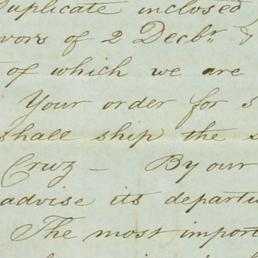 Duplicate inclosed
vors of 2 Decbr &
of which we are
Your order for s
shall ship the s
Cruz — By our
advise its departu
The most import